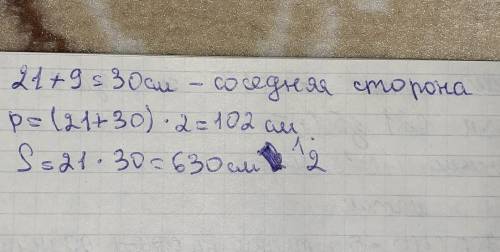 21+9=30см - соседняя сторона
P=(21+30)·2=102 см
S=21·30=630см 2